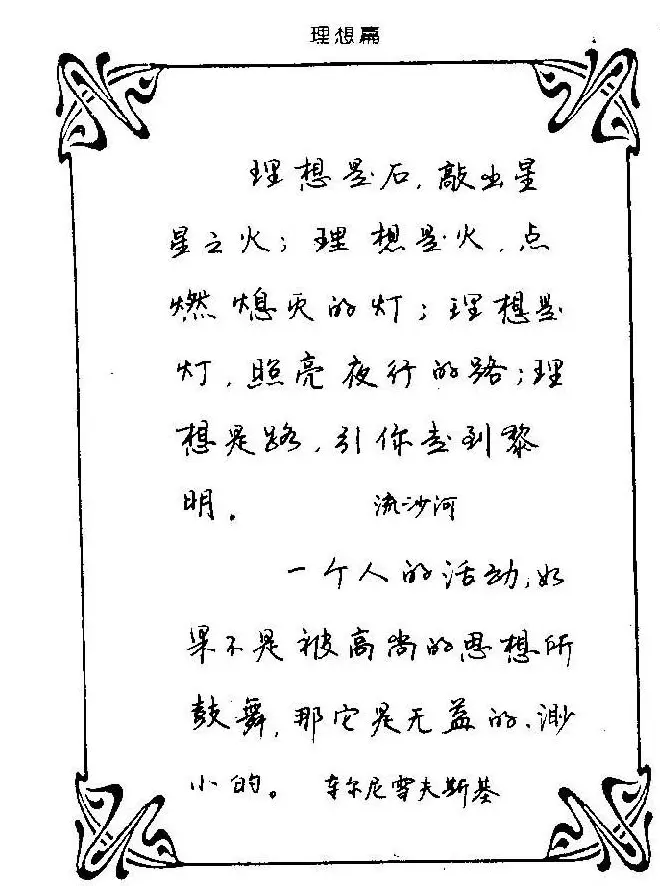 理想篇
理想是石，敲出星
星之火；理想是火，点
燃熄灭的灯；理想是
灯，照亮夜行的路；理
想是路，引你走到黎
明。 流沙河
一个人的活动，如
果不是被高尚的思想所
鼓舞，那它是无益的、渺
小的。 车尔尼雪夫斯基